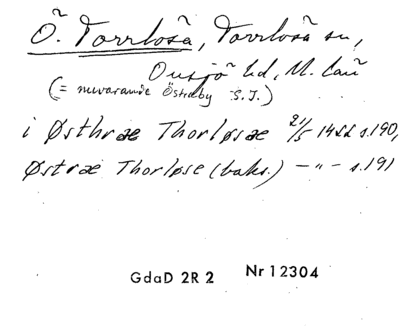 Ö. Torrlösa, Torrlösa sn,
Onsjö hd, M. län
(= nuvarande Östraby S.J.)
i Østhræ Thorløsæ 21/5 1422 s.190,
Østræ Thorløse (baks.) – " – s.191
GdaD 2R 2 Nr 12304